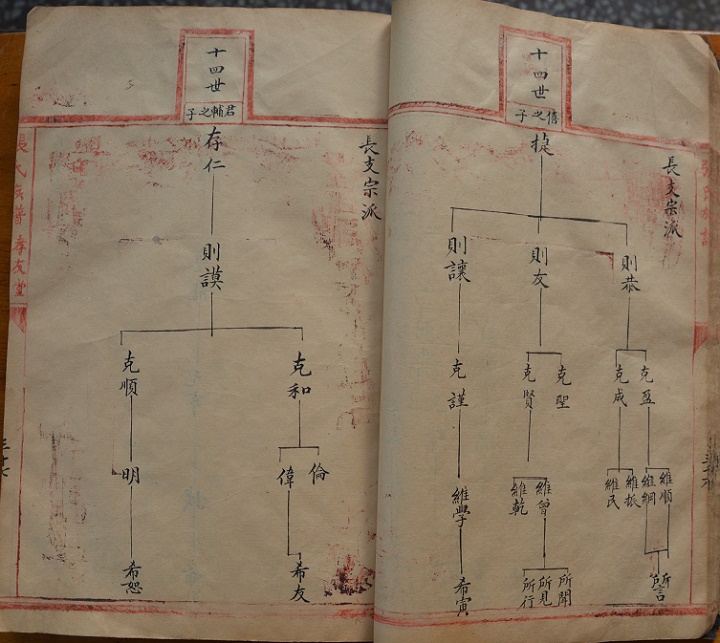 十四世
俻之子
長支宗派
捷
則恭
則友
則讓
克盈
克成
克聖
克賢
克謹
維順
維綱
維振
維民
維曾
維乾
維學
所言
所聞
所見
所行
希寅
十四世
君輔之子
長支宗派
存仁
則謨
克和
克順
倫
偉
明
希友
希恕
張氏族譜
孝友堂